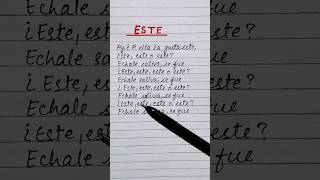 ESTE
Ay, ¿A ella la gusta esto,
este, este o este?
Echale saliva, se fue
¿Este, este, este o este?
Echale saliva, se fue
¿Este, este, este o este?
Echale saliva, se fue
¿Este, este, este o este?
Echale saliva, se fue
¿Este, est
este?
Echale
se fue